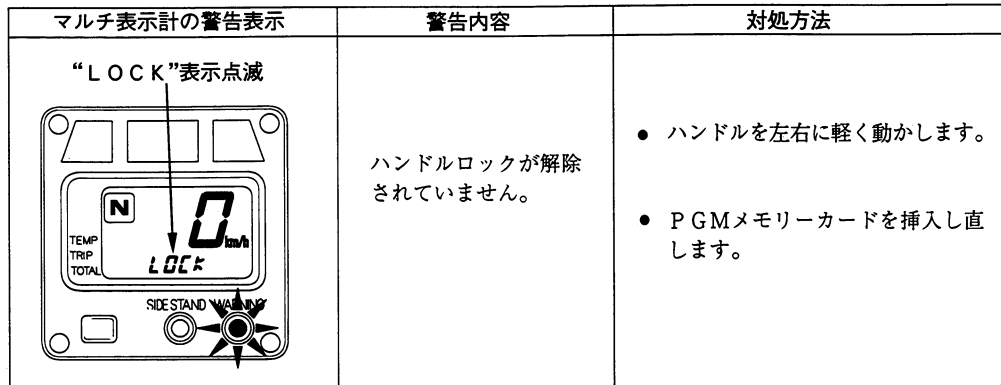 マルチ表示計の警告表示
警告内容
対処方法
“ＬＯＣＫ”表示点滅
N
0
km/h
TEMP
TRIP
TOTAL
LOCK
SIDE STAND WARNING
ハンドルロックが解除
されていません。
● ハンドルを左右に軽く動かします。
● ＰＧＭメモリーカードを挿入し直
します。